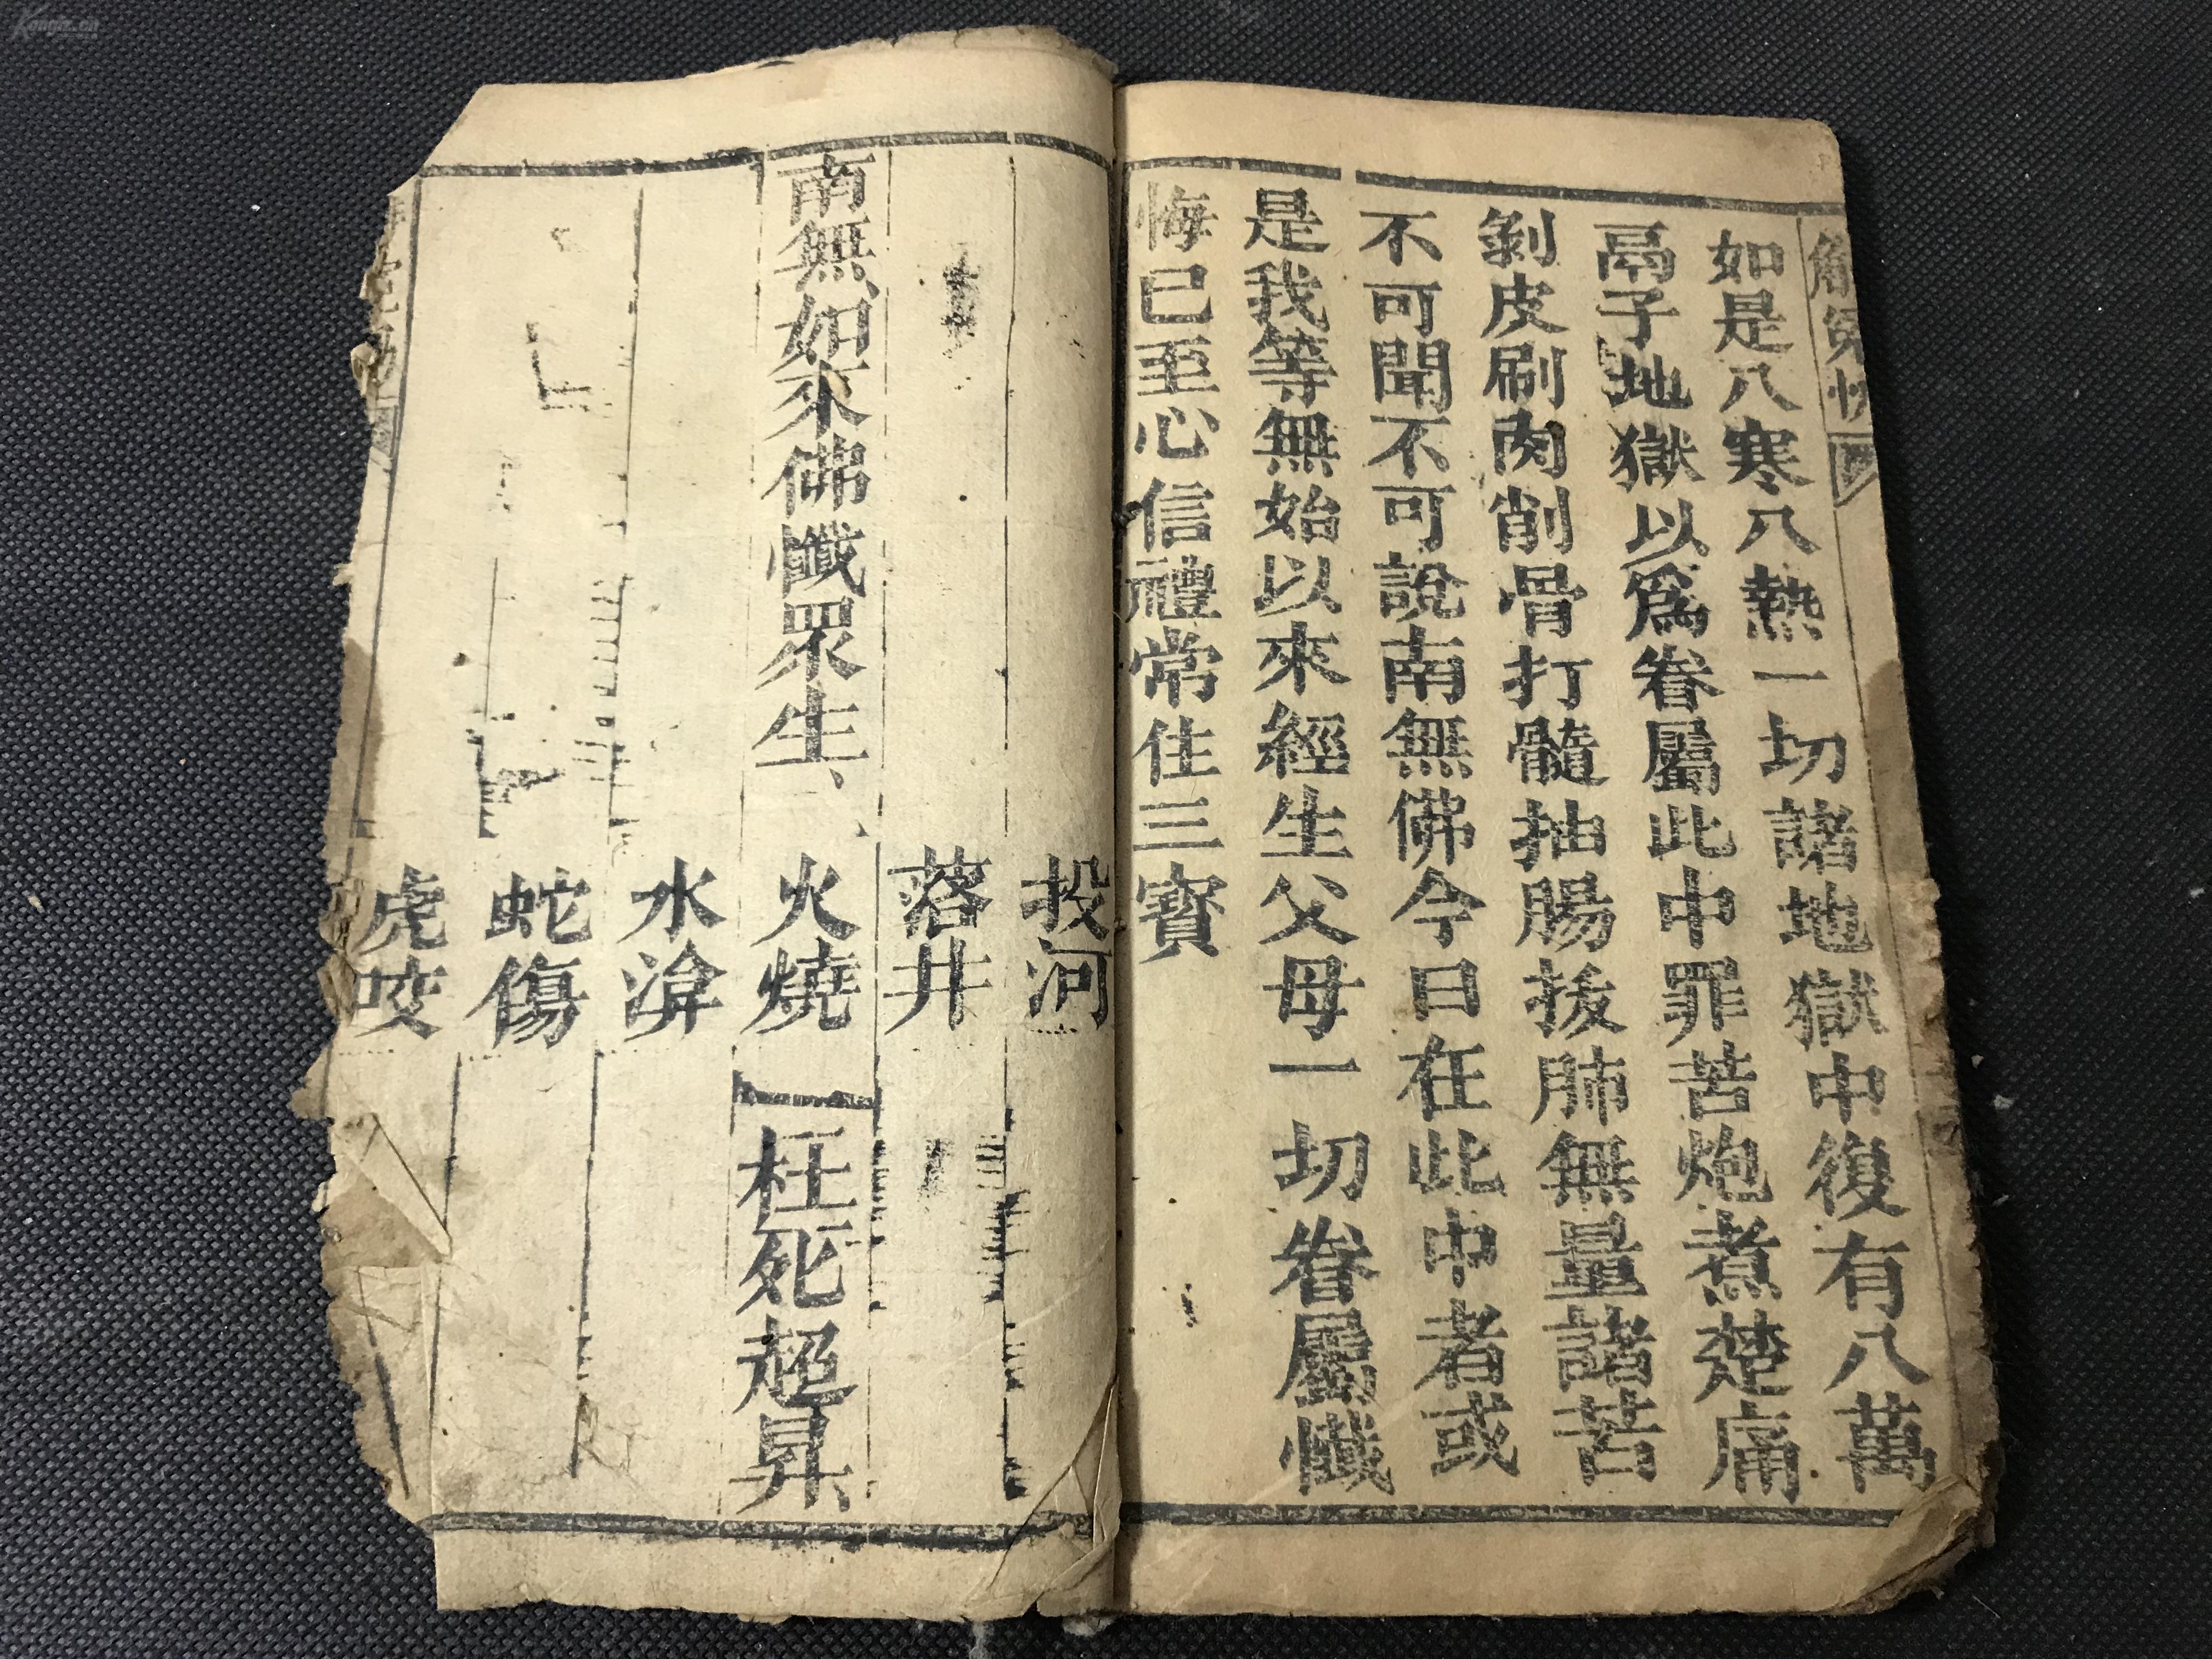 如是八寒八熱一切諸地獄中復有八萬
鬲子地獄以爲眷屬此中罪苦炮煮楚痛
剝皮刷肉削骨打髓抽腸拔肺無量諸苦
不可聞不可說南無佛今日在此中者或
是我等無始以來經生父母一切眷屬懺
悔已至心信禮常住三寶
投河
落井
南無如來佛懺眾生、火燒枉死超昇、
水渰
蛇傷
虎咬
Kongfz.cn